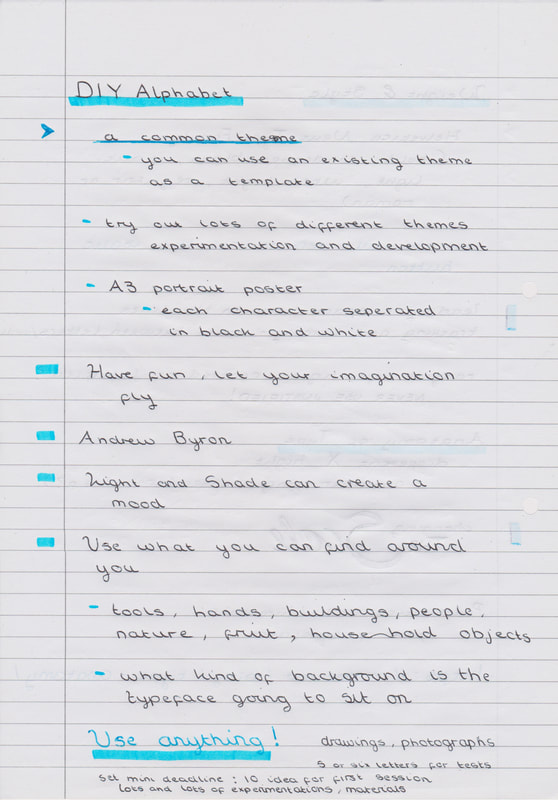 DIY Alphabet
a common theme
- you can use an existing theme
as a template
- try out lots of different themes
experimentation and development
- A3 portrait poster
- each character seperated
in black and white
Have fun, let your imagination
fly
Andrew Byron
Light and Shade can create a
mood
Use what you can find around
you
- tools, hands, buildings, people,
nature, fruit, household objects
- what kind of background is the
typeface going to sit on
Use anything! drawings, photographs
5 or six letters for tests
set mini deadline : 10 idea for first session
lots and lots of experimentations, materials